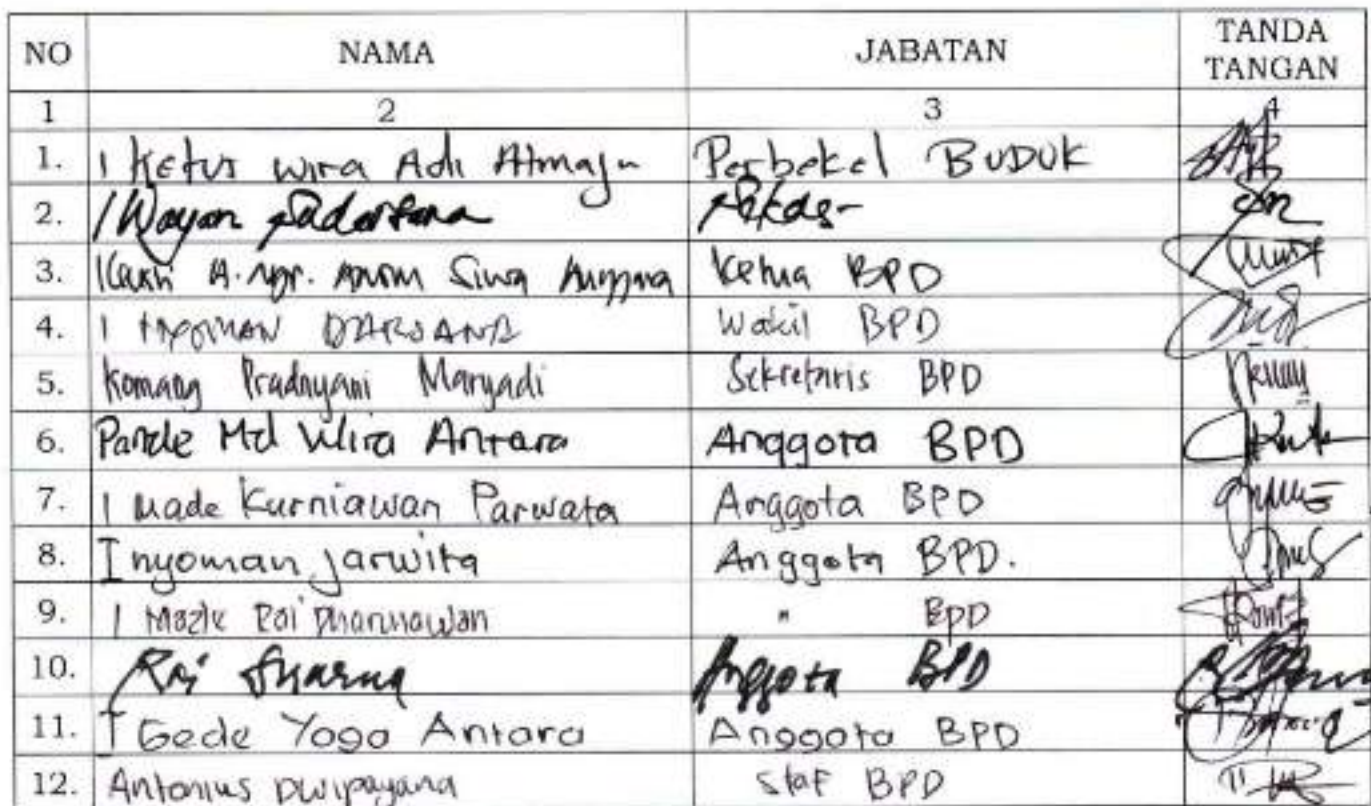 NO NAMA JABATAN TANDA TANGAN
1 2 3 4
1. I Ketut Wira Adi Atmaja Perbekel BUDUK
2. I Wayan Sadarsana Sekdes
3. A. Ngr. Anom Siwa Ketua BPD
4. I NYOMAN DARSANA Wakil BPD
5. Komang Pradnyani Maryadi Sekretaris BPD
6. Pande Md Wira Antara Anggota BPD
7. I Made Kurniawan Parwata Anggota BPD
8. I nyoman Jarwita Anggota BPD.
9. I Made Rai Dharmawan " BPD
10. Rai Anggota BPD
11. I Gede Yoga Antara Anggota BPD
12. Antonius Dwipayana Staf BPD